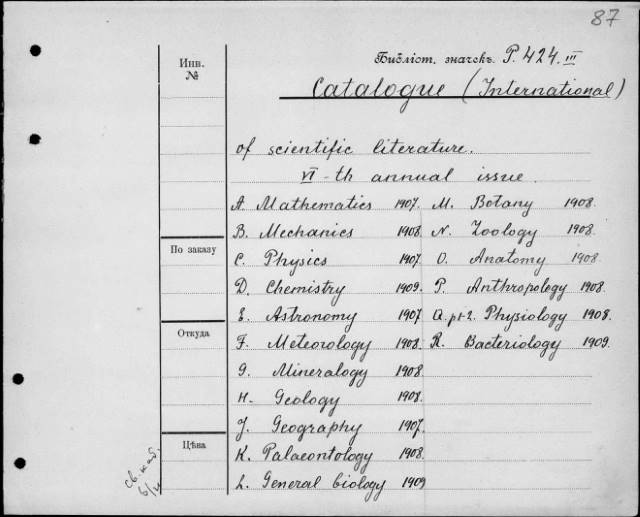 87
Инв.
№
Библіот. значекъ P. 424. III
Catalogue (International)
of scientific literature.
VI-th annual issue.
A. Mathematics 1907. M. Botany 1908.
B. Mechanics 1908. N. Zoology 1908.
По заказу
C. Physics 1907. O. Anatomy 1908.
D. Chemistry 1909. P. Anthropology 1908.
E. Astronomy 1907. Q. pt-2. Physiology 1908.
Откуда
F. Meteorology 1908. R. Bacteriology 1909.
G. Mineralogy 1908.
H. Geology 1908.
J. Geography 1907.
Цѣна
K. Palaeontology 1908.
L. General biology 1909